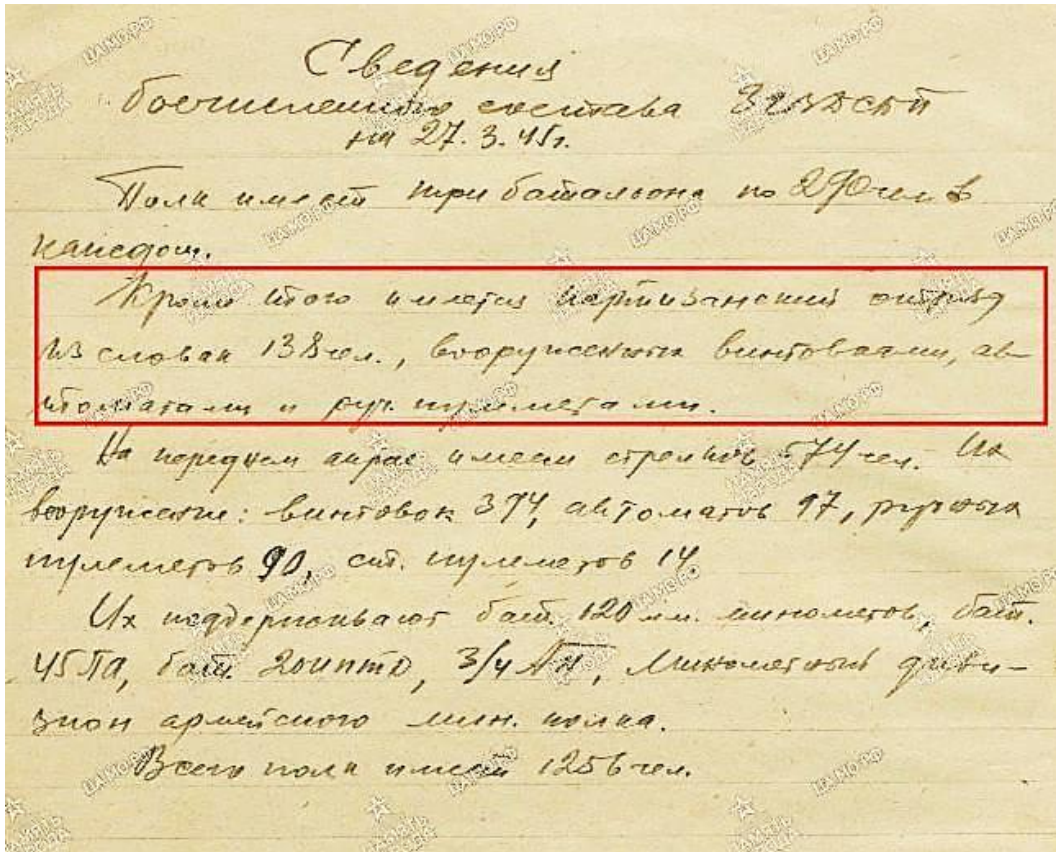 Сведения
боечисленного состава 3 гв ВДСП
на 27.3.45г.
Полк имеет три батальона по 290 чел в
каждом.
Кроме того имеется партизанский отряд
из словак 138 чел., вооруженных винтовками, ав-
томатами и руч. пулеметами.
На переднем крае имеем стрелков 574 чел. Их
вооружение: винтовок 374, автоматов 97, ручных
пулеметов 90, ст. пулеметов 14.
Их поддерживают бат. 120 мм. минометов, бат.
45 ПА, бат. 2 оиптд, 3/4 АП, Минометный диви-
зион армейского мин. полка.
Всего полк имеет 1256 чел.
ЦАМО.РФ
ПАМЯТЬ НАРОДА